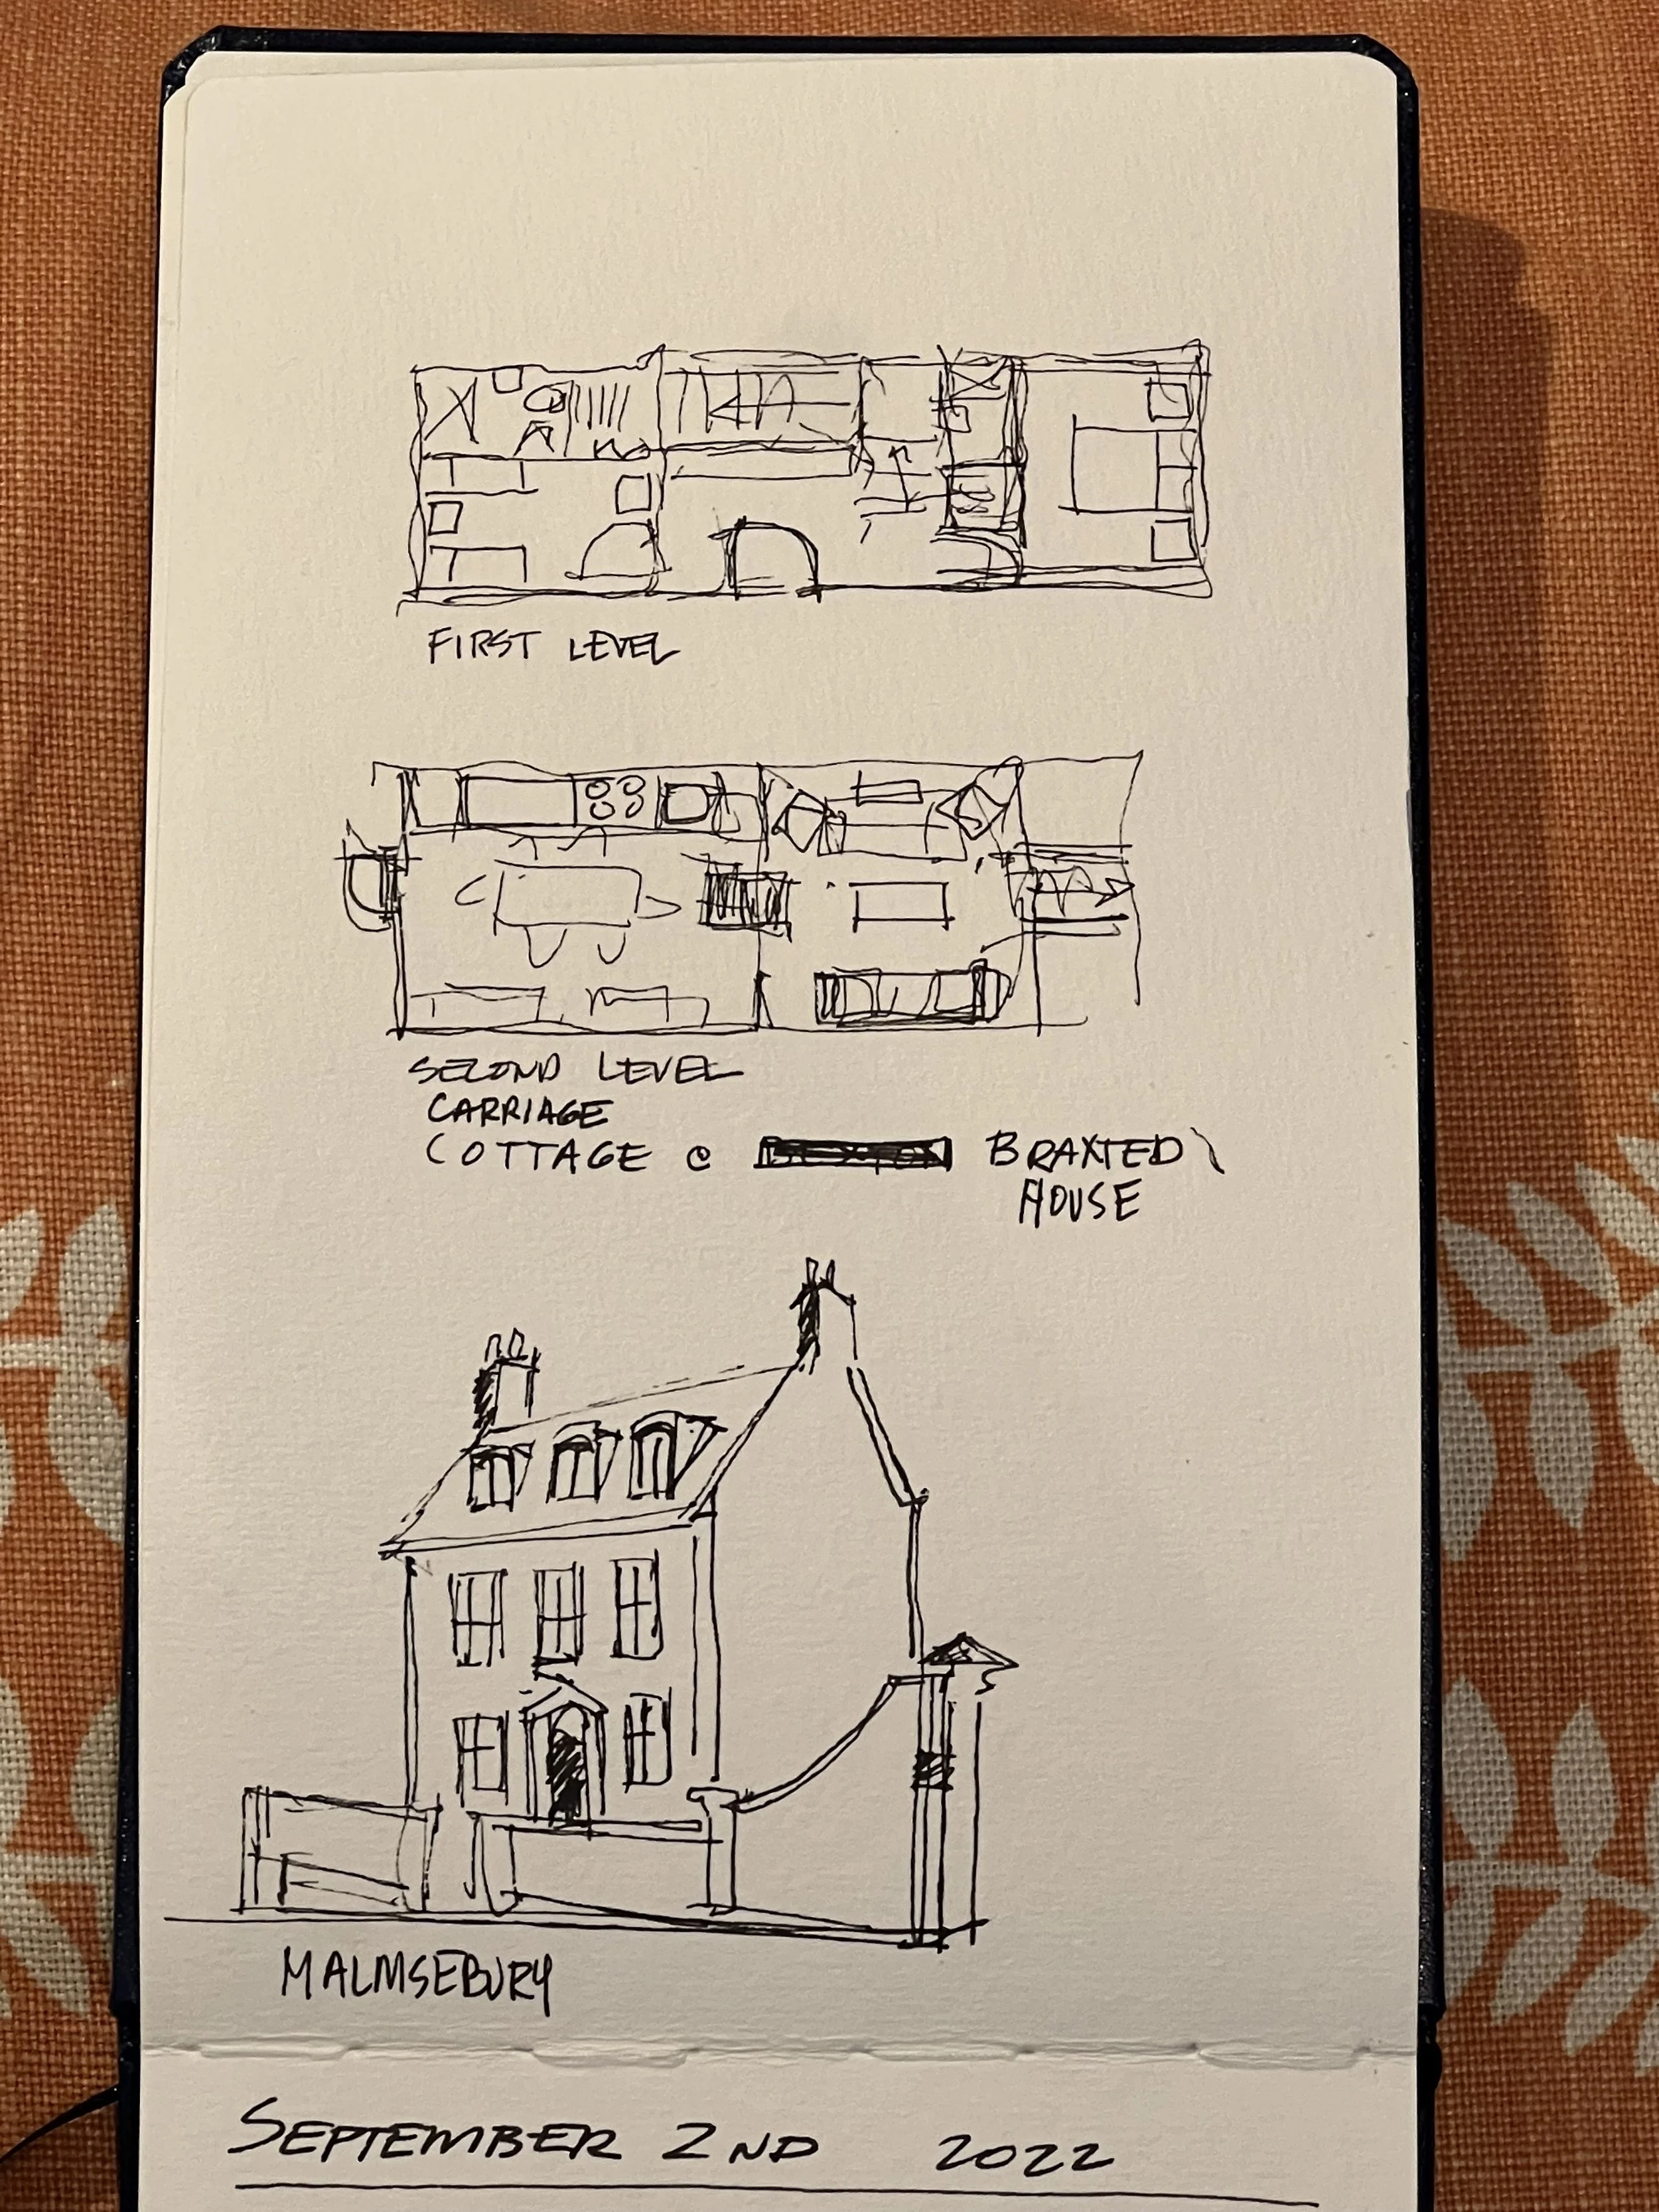 FIRST LEVEL
SECOND LEVEL
CARRIAGE
COTTAGE @ BRAXTED
HOUSE
MALMSEBURY
SEPTEMBER 2ND 2022